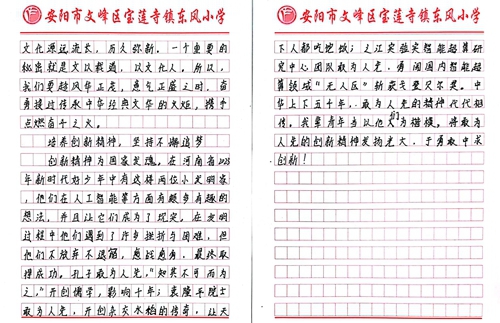 安阳市文峰区宝莲寺镇东风小学
文化源远流长，历久弥新。一个重要的
秘密就是文以载道，以文化人。所以，
我们要趁风华正茂，意气正盛之时，自
勇接过传承中华经典文华的火炬，携手
点燃奋斗之火。
培养创新精神，坚持不懈追梦
创新精神为国家发魂。在河南省2023
年新时代好少年中有这样两位小发明家
，他们在人工智能等方面有颇多有趣的
想法，并且让它们成为了现实。在发明
过程中他们遇到了许多挫折与困难，但
他们不放弃不退缩，愈战愈勇，最终取
得成功。孔子敢为人先，“知其不可而为
之，”开创儒学，影响千年；袁隆平院士
敢为人先，开创杂交水稻的传奇，让天
安阳市文峰区宝莲寺镇东风小学
下人都吃饱饭；之江实验室智能超算研
究中心团队敢为人先，勇闯国内智能超
算领域“无人区”斩获戈登贝尔奖。中
华上下五千年，敢为人先的精神代代相
传，我辈青年当以他们为楷模，将敢为
人先的创新精神发扬光大，于勇敢中求
创新！